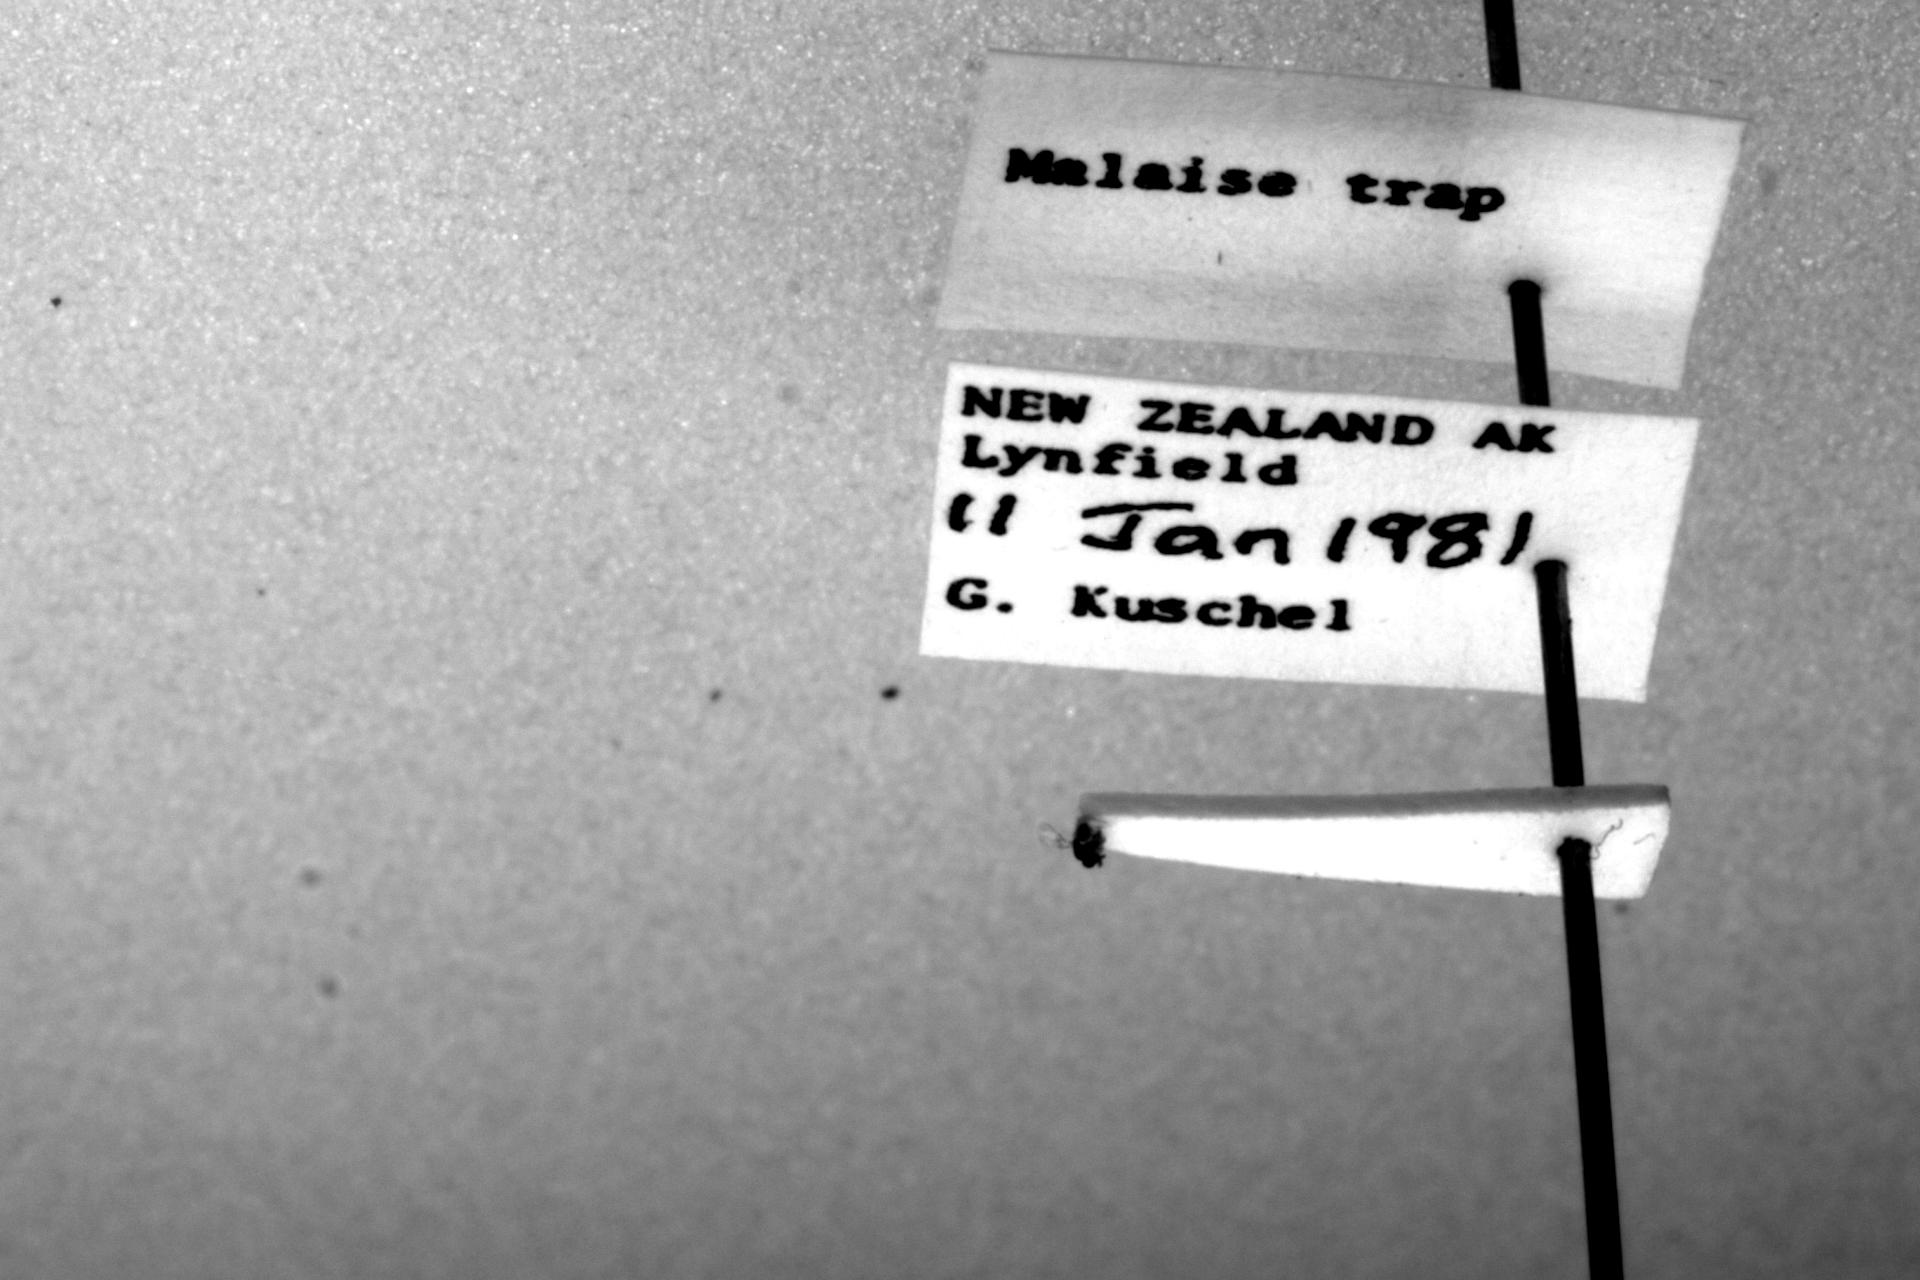 Malaise trap
NEW ZEALAND AK
Lynfield
11 Jan 1981
G. Kuschel